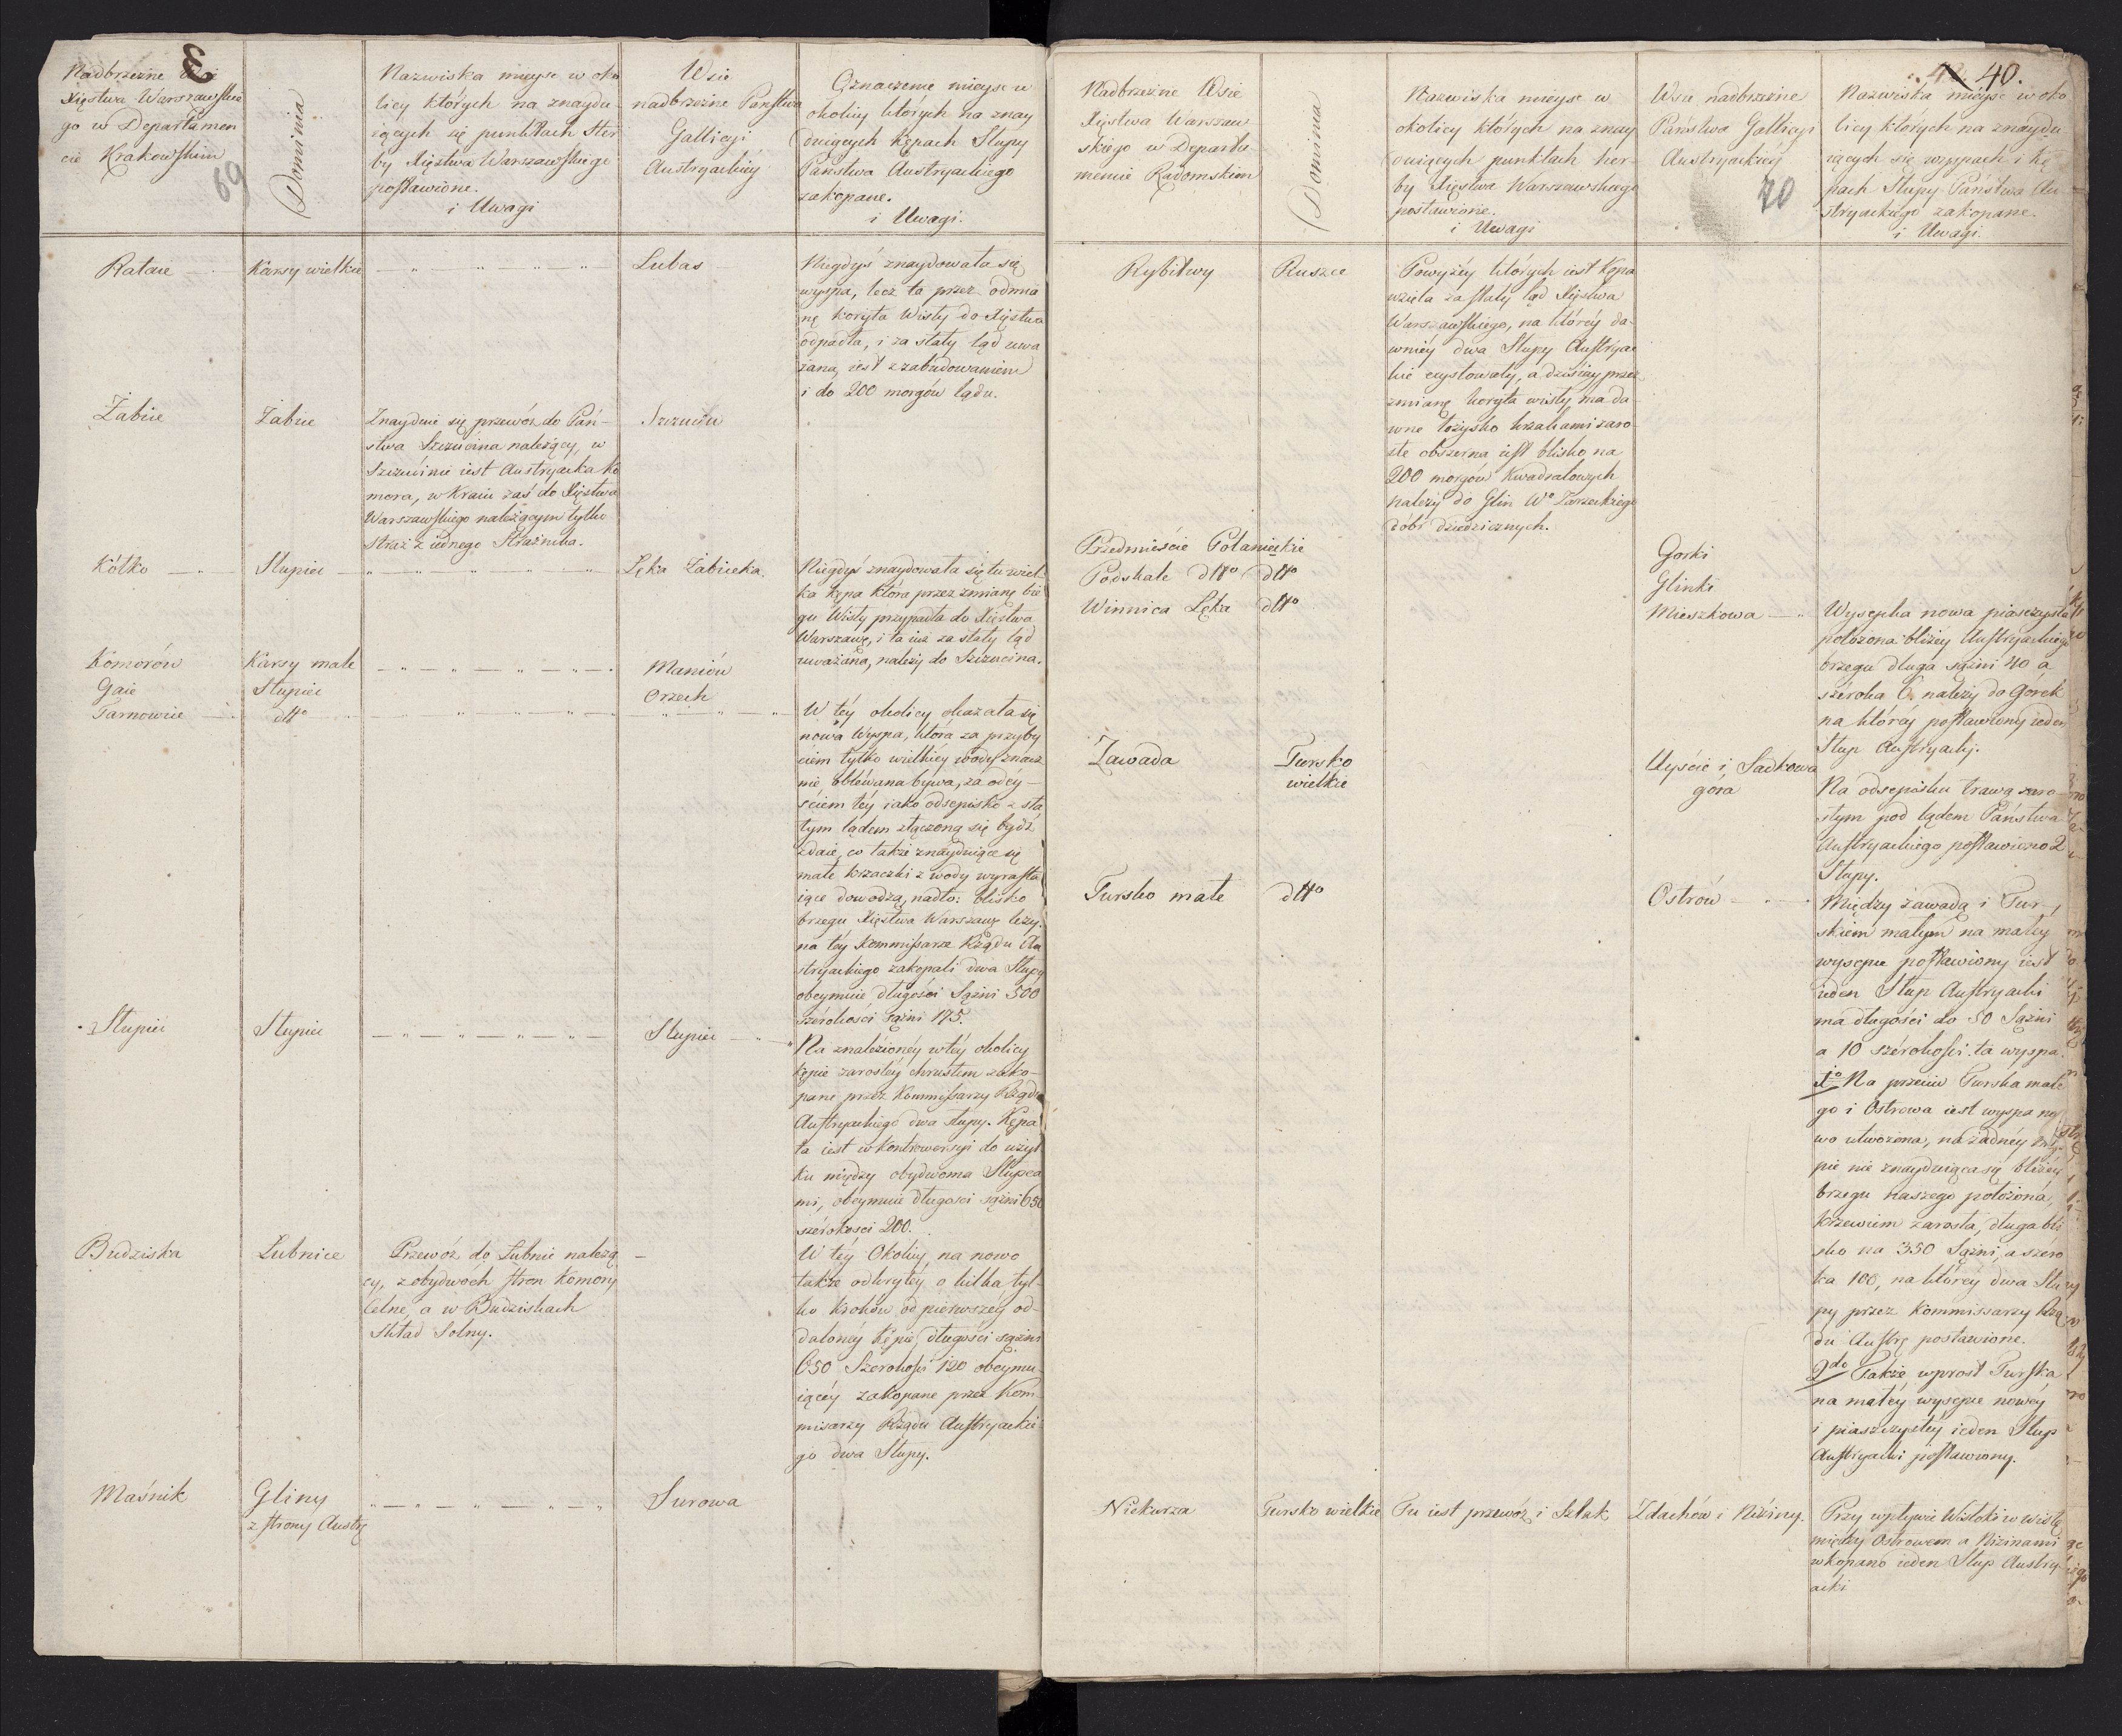 Nadbrzeżne Wsie
Xięstwa Warszawskie
go w Departamen
cie Krakowskim
69
Dominia
Nazwiska mieysc w oko
licy których na znaydu
iących się punktach Her
by Xięstwa Warszawskiego
postawione.
i Uwagi
Wsie
nadbrzeżne Państwa
Gallicyi
Austryackiey
Oznaczenie mieysc w
okolicy których na znay
duiących Kępach Słupy
Państwa Austryackiego
zakopane.
i Uwagi.
Rataie
Karsy wielkie
Lubas
Niegdyś znaydowała się
wyspa, lecz ta przez odmia
nę koryta Wisły do Xięstwa
odpadła, i za stały ląd uwa
żana, iest z zabudowaniem
i do 200 morgów lądu.
Żabiec
Żabiec
Znayduie się przewóz do Pań-
stwa Szczucina należący, w
Szczucinie iest Austryacka Ko
mora, w Kraiu zaś do Xięstwa
Warszawskiego należącym tylko
straż z iednego Strażnika.
Szczucin
Kółko
Słupiec
Łęka Żabiecka.
Niegdyś znaydowała się tu wiel
ka Kępa która przez zmianę bie
gu Wisły przypadła do Xięstwa
Warszawę, i ta iuż za stały ląd
uważana, należy do Szczucina.
Komorów
Karsy małe
Maniów
Gaie
Słupiec
Orzech
Tarnowiec
dtto
W téy okolicy okazała się
nowa Wyspa, która za przyby
ciem tylko wielkiéy wody znacz
nie oblewana bywa, za odey-
ściem téy iako odsepisko z sta
łym lądem złączoną się bydź
zdaie, co także znayduiące się
małe krzaczki z wody wyrasta
iące dowodzą, nadto: blisko
brzegu Xięstwa Warszawg leży,
na téy Kommissarze Rządu Au
stryackiego zakopali dwa Słupy
obeymuie długości Sążni 500
szérokości sążni 175.
Słupiec
Słupiec
Słupiec
Na znalezionéy w téy okolicy
Kępie zarosłéy chrustem zako-
pane przez Kommissarzy Rządu
Austryackiego dwa słupy. Kępa
ta iest w kontrowersyi do użyt
ku między obydwoma Słupca
mi, obeymuie długości sążni 650
szérokości 200.
Budziska
Łubnice
Przewóz do Łubnic należą
cy, z obydwóch stron Komory
Celne, a w Budziskach
Skład Solny.
W téy Okolicy, na nowo
także odkrytéy o kilka tyl-
ko kroków od pierwszéy od-
daloney Kępie, długości sążni
650 Szerokości 120 obeymu-
iącéy zakopane przez Kom-
misarzy Rządu Austryackie
go dwa Słupy.
Maśnik
Gliny
z strony Austrę
Surowa
40.
Nadbrzeżne Wsie
Xięstwa Warszaw
skiego w Departa-
mencie Radomskim
Dominia
Nazwiska mieysc w
okolicy których na znay
duiących punktach her-
by Xięstwa Warszawskiego
postawione.
i Uwagi
Wsie nadbrzeżne
Państwa Gallicyi
Austryackiéy
70
Nazwiska mieysc w oko
licy których na znaydu
iących się wyspach i kę
pach Słupy Państwa Au
stryackiego zakopane.
i Uwagi.
Rybitwy
Ruszcze
Powyżéy których iest Kępa
wzięta za stały ląd Xięstwa
Warszawskiego, na któréy da-
wniéy dwa Słupy Austryac
kie exystowały, a dzisiay przez
zmianę koryta wisły, ma da-
wne łożysko krzakami zaro-
słe obszerna iest blisko na
200 morgów Kwadratowych
należy do Glin Wo Zarzeckiego
dóbr dziedzicznych.
Przedmieście Połanieckie
Gorki
Podskale dtto dtto
Glinki
Winnica Łęka dtto
Mieszkowa
Wysepka nowa piaszczysta
położona bliżey Austryackiego
brzegu długa sążni 40 a
széroka 6, należy do Górek
na któréy postawiony ieden
Słup Austryacky.
Zawada
Tursko
wielkie
Uyście i Sadkowa
góra
Na odsepisku trawą zaro-
słym pod lądem Państwa
Austryackiego postawiono 2
Słupy.
Tursko małe
dtto
Ostrów
Między Zawadą i Tur-
skiem małym na małéy
wysepce postawiony iest
ieden Słup Austryacki
ma długości do 50 Sążni
a 10 szérokości ta wyspa.
1o Na przeciw Turska małe
go i Ostrowa iest wyspa no
wo utworzona, na żadnéy map
pie nie znayduiąca się bliżéy
brzegu naszego położona,
krzewiem zarosła, długa bli
sko na 350 Sążni, a széro
ka 100, na któréy dwa Słu
py przez Kommissarzy Rzą
du Austrę postawione.
2do Także, wprost Turska
na małéy wysepce nowéy
i piaszczystéy ieden Słup
Austryacki postawiony.
Niekurza
Tursko wielkie
Tu iest przewóz i Szlak
Zdachów i Niziny.
Przy wpływie Wisłoki w wisłę
między Ostrowem a Nizinami
wkopano ieden Słup Austry
acki